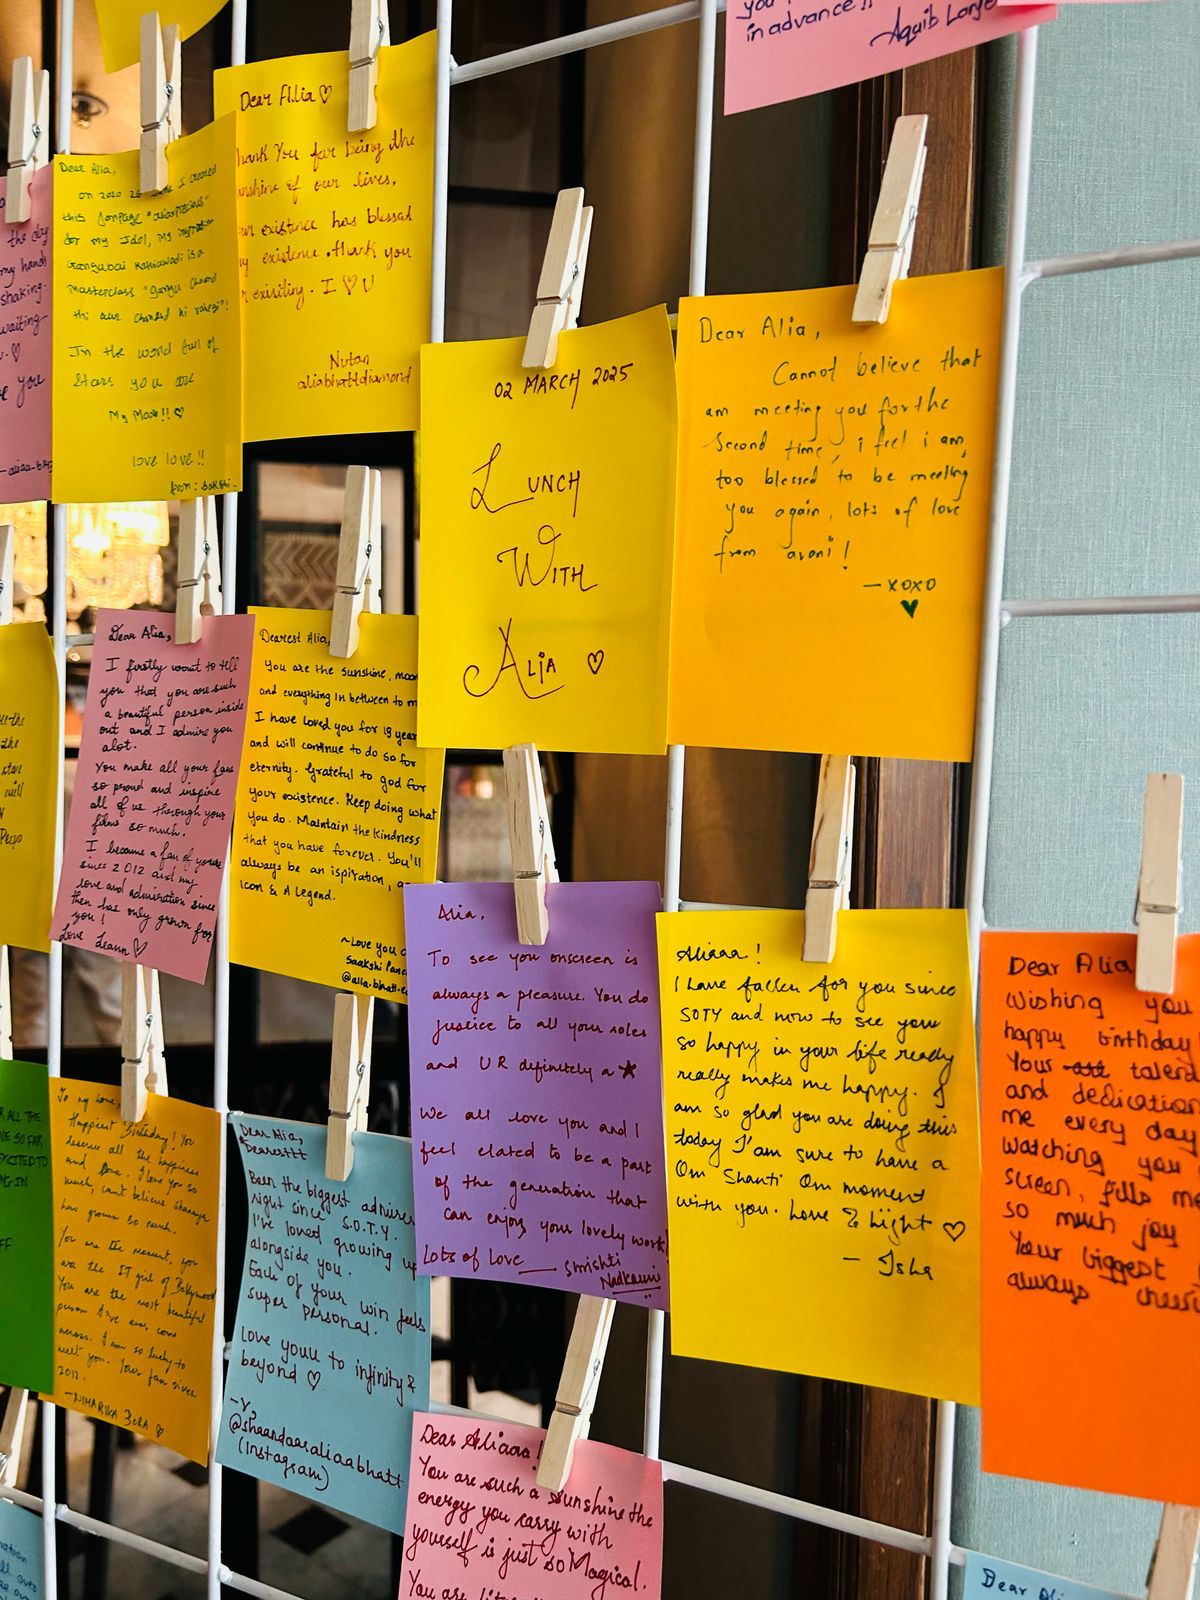 in advance!!
Aquib
Dear Alia ♡
Thank You for being the
sunshine of our lives.
existence has blessed
my existence. thank you
existing. I ♡ U
Nutan
aliabhattdiamond
Dear Alia,
on 2020 26 I created
this fanpage
for my Idol, My inspiration
Gangubai Kathiawadi is a
Masterclass "Gangu Chand
thi aur Chand hi rahegi"!
In the world full of
Stars you are
My Moon!! ♡
love love!!
from: Sakshi
the day
my hands
shaking.
waiting
♡
you
02 MARCH 2025
LUNCH
WITH
ALIA ♡
Dear Alia,
Cannot believe that
am meeting you for the
second time, i feel i am
too blessed to be meeting
you again, lots of love
from avani!
— xoxo
♥
Dear Alia,
I firstly want to tell
you that you are such
a beautiful person inside
out and I admire you
alot.
You make all your fans
so proud and inspire
all of us through your
films so much.
I became a fan of yours
since 2012 and my
love and admiration since
then has only grown for
you!
Love Leann ♡
Dearest Alia,
You are the sunshine, moon
and everything in between to m
I have loved you for 13 year
and will continue to do so for
eternity. Grateful to god for
your existence. Keep doing what
you do. Maintain the kindness
that you have forever. You'll
always be an ispiration, a
Icon & A Legend.
~Love you
Saakshi
@alia.bhatt.
Alia,
To see you onscreen is
always a pleasure. You do
justice to all your roles
and UR definitely a ★
We all love you and I
feel elated to be a part
of the generation that
can enjoy your lovely work!
Lots of love — Smrishti
Nadkarni
Aliaaa!
I have fallen for you since
SOTY and now to see your
so happy in your life really
really makes me happy. I
am so glad you are doing this
today I'am sure to have a
Om Shanti Om moment
with you. Love & Light ♡
— Isha
Dear Alia
Wishing you
happy birthday
Your are talent
and dedication
me every day
watching you
screen, fills me
so much joy
Your biggest
always cheer
ALL THE
SO FAR
EXCITED TO
IN
To my love,
Happiest Birthday! You
deserve all the happiness
and love. I love you so
much, cant believe
has grown so much.
You are the moment, you
are the IT girl of Bollywood
You are the most beautiful
person I've ever come
across. I am so lucky to
meet you. Your fan since
2012.
— NIHARIKA BORA ♡
Dear Alia,
Dearesttt
Been the biggest admirer
right since S.O.T.Y.
I've loved growing up
alongside you.
Each of your win feels
super personal.
Love youu to infinity &
beyond ♡
-V,
@shaandaaraliaabhatt
(Instagram)
Dear Aliaaa!
You are such a sunshine the
energy you carry with
yourself is just so Magical.
You are
Dear Ali